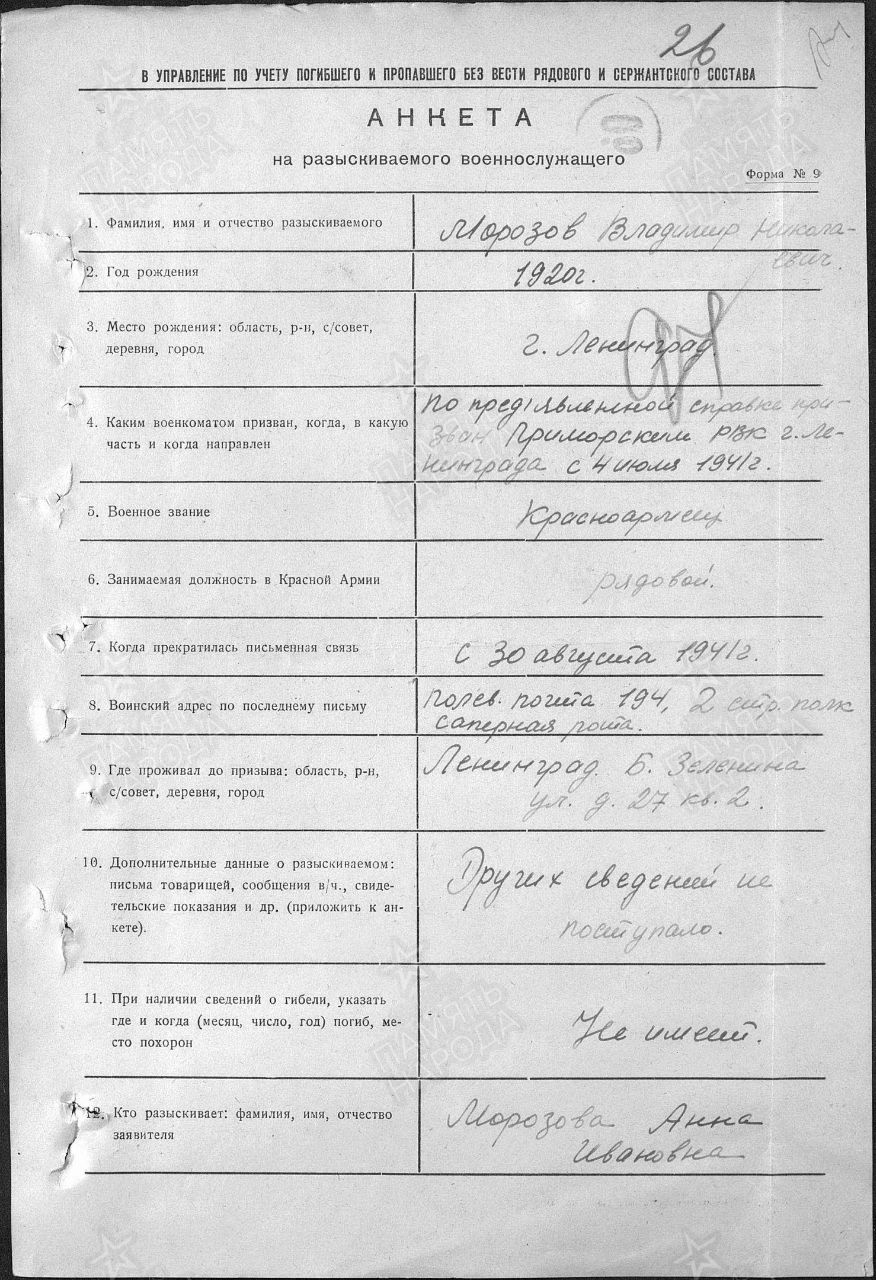 26
В УПРАВЛЕНИЕ ПО УЧЕТУ ПОГИБШЕГО И ПРОПАВШЕГО БЕЗ ВЕСТИ РЯДОВОГО И СЕРЖАНТСКОГО СОСТАВА
АНКЕТА
на разыскиваемого военнослужащего
Форма № 9
1. Фамилия, имя и отчество разыскиваемого
Морозов Владимир Никола-
евич.
2. Год рождения
1920г.
3. Место рождения: область, р-н, с/совет,
деревня, город
г. Ленинград.
4. Каким военкоматом призван, когда, в какую
часть и когда направлен
По предъявленной справке при-
зван Приморским РВК г. Ле-
нинграда с 4 июля 1941г.
5. Военное звание
Красноармеец
6. Занимаемая должность в Красной Армии
рядовой.
7. Когда прекратилась письменная связь
с 30 августа 1941г.
8. Воинский адрес по последнему письму
полев. почта 194, 2 стр. полк
саперная рота.
9. Где проживал до призыва: область, р-н,
с/совет, деревня, город
Ленинград. Б. Зеленина
ул. д. 27 кв. 2.
10. Дополнительные данные о разыскиваемом:
письма товарищей, сообщения в/ч., свиде-
тельские показания и др. (приложить к ан-
кете).
Других сведений не
поступало.
11. При наличии сведений о гибели, указать
где и когда (месяц, число, год) погиб, ме-
сто похорон
Не имеет.
12. Кто разыскивает: фамилия, имя, отчество
заявителя
Морозова Анна
Ивановна
ПАМЯТЬ
НАРОДА